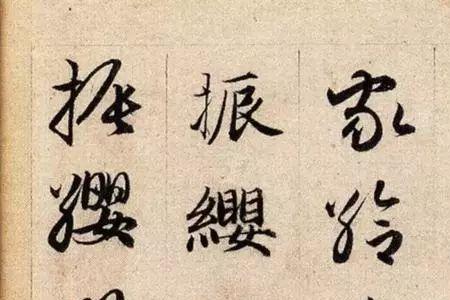 家給
振纓
振纓